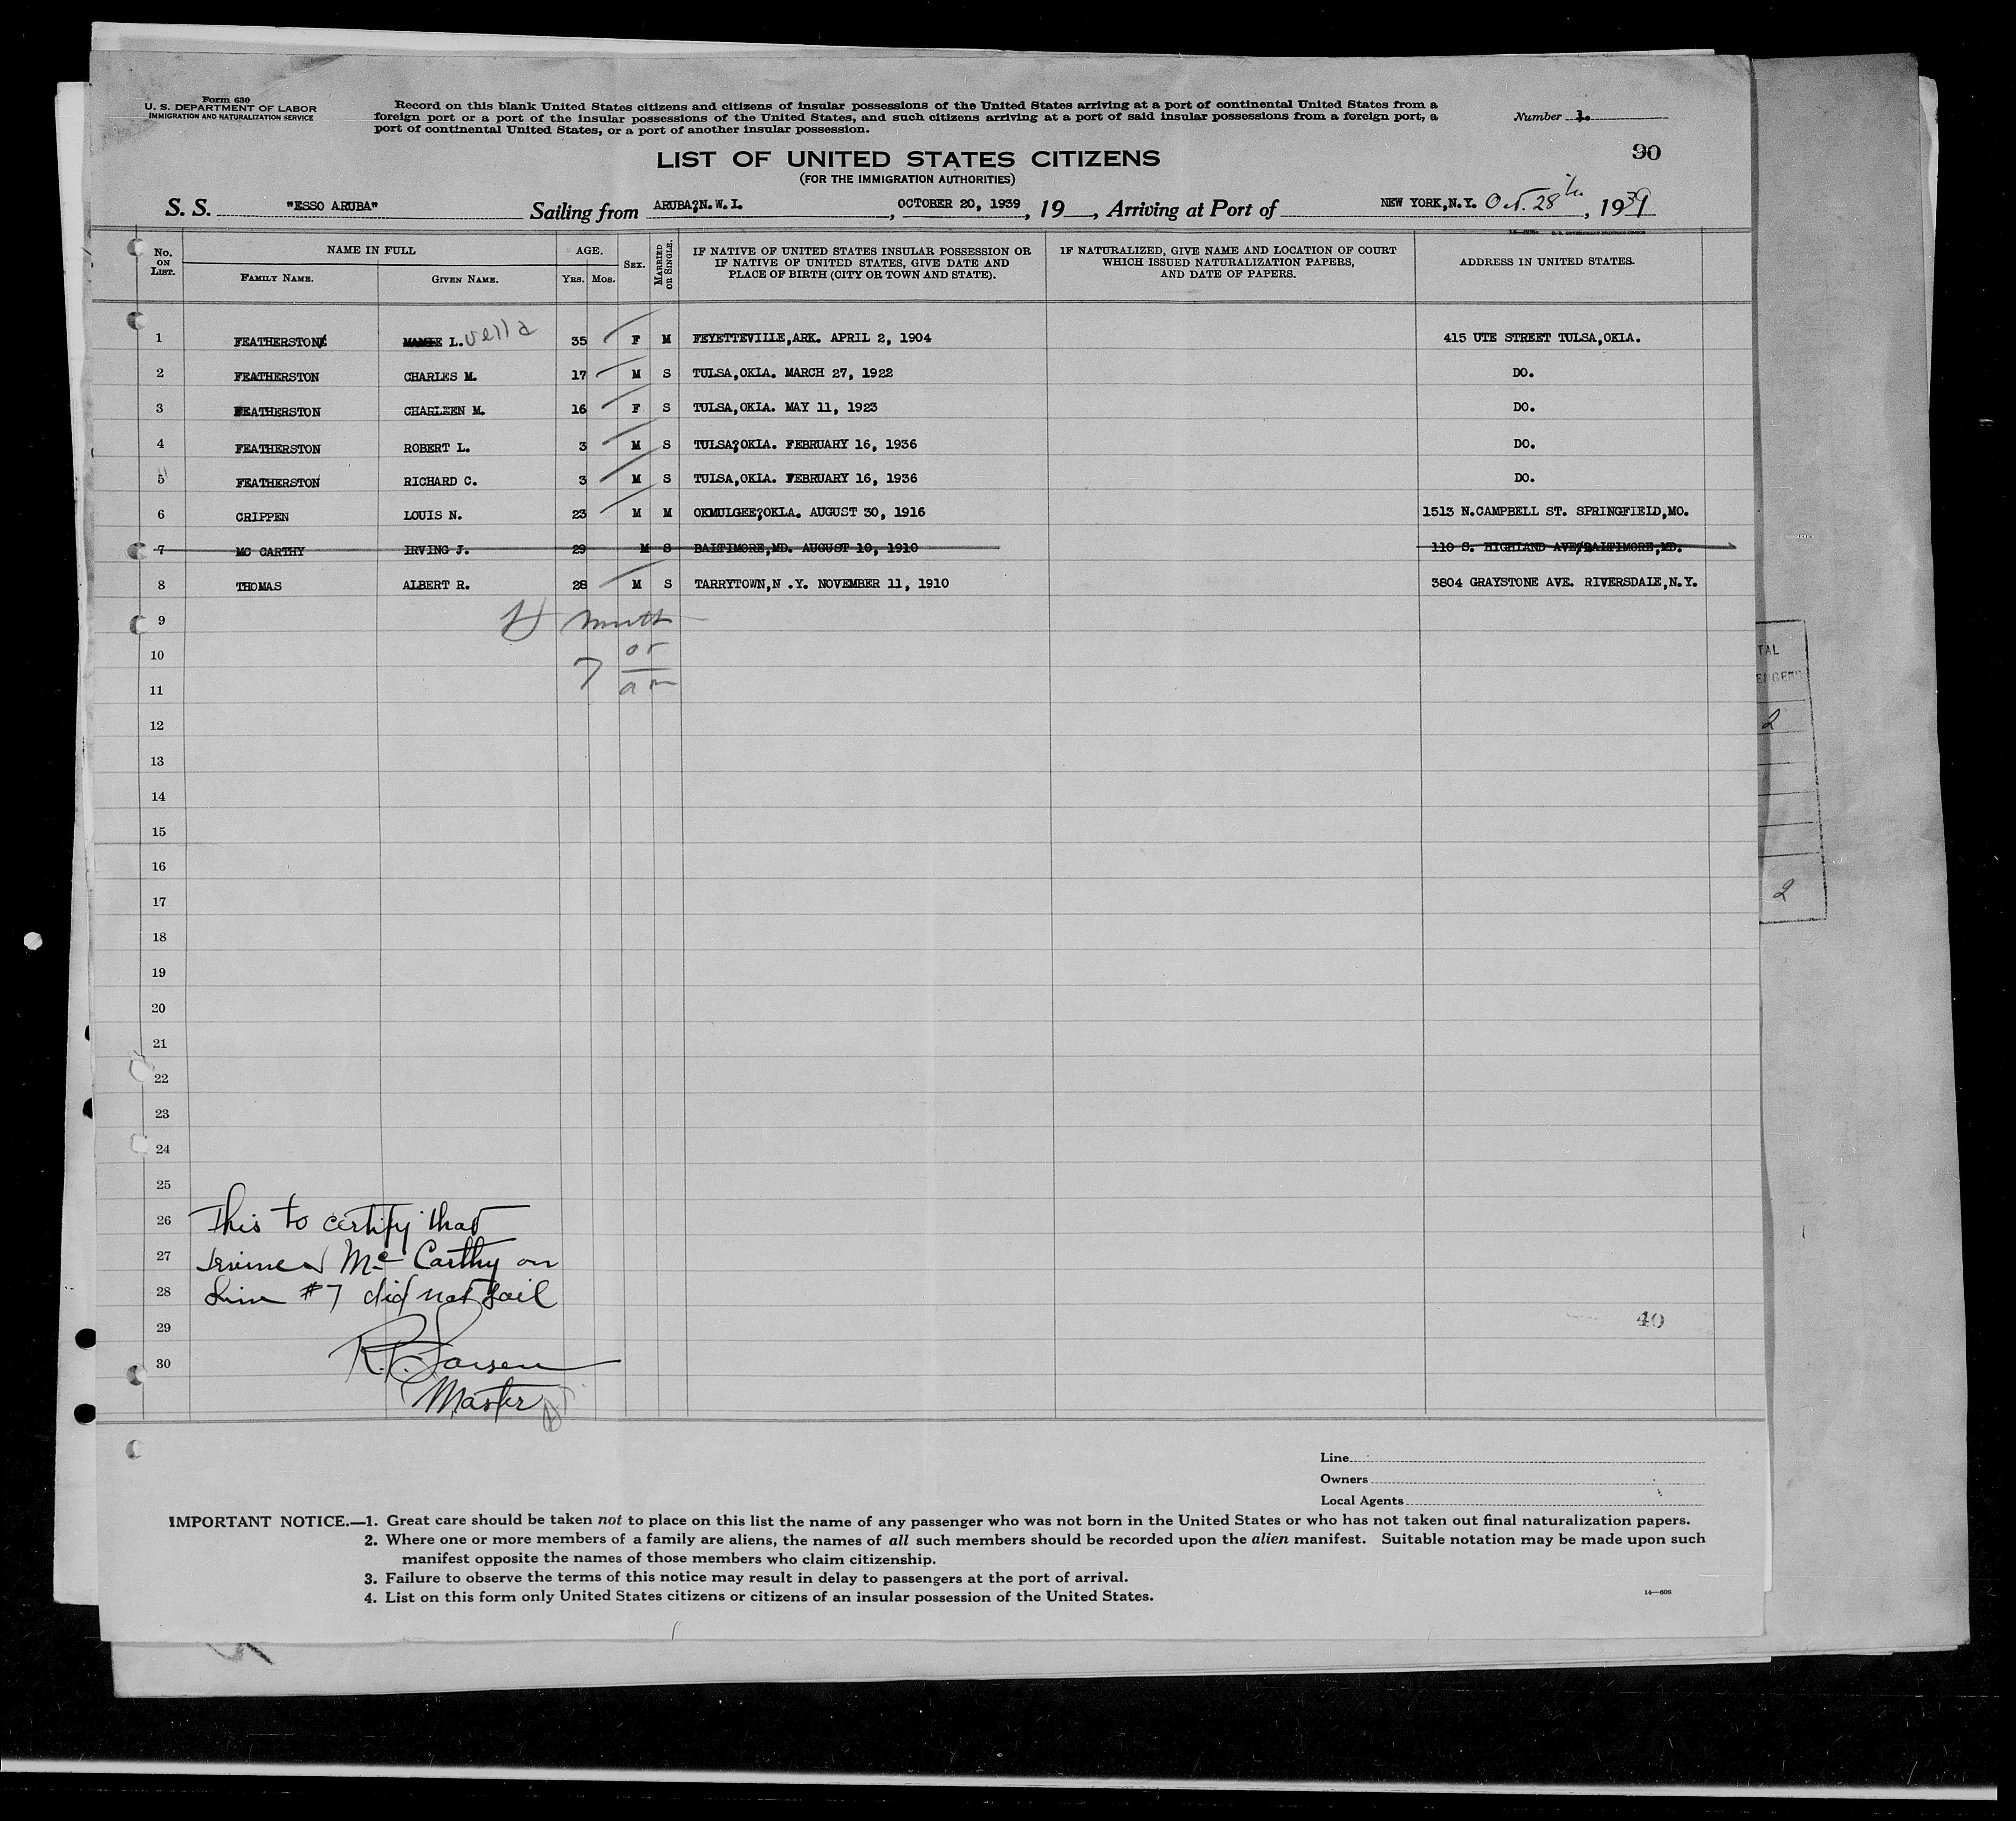 Form 630
U. S. DEPARTMENT OF LABOR
IMMIGRATION AND NATURALIZATION SERVICE
Record on this blank United States citizens and citizens of insular possessions of the United States arriving at a port of continental United States from a
foreign port or a port of the insular possessions of the United States, and such citizens arriving at a port of said insular possessions from a foreign port, a
port of continental United States, or a port of another insular possession.
Number 1.
90
LIST OF UNITED STATES CITIZENS
(FOR THE IMMIGRATION AUTHORITIES)
S. S. "ESSO ARUBA" Sailing from ARUBA?N.W.I. , OCTOBER 20, 1939 , 19 , Arriving at Port of NEW YORK,N.Y. Oct. 28th , 1939
No. ON LIST. NAME IN FULL FAMILY NAME. GIVEN NAME. AGE. YRS. MOS. SEX. MARRIED OR SINGLE. IF NATIVE OF UNITED STATES INSULAR POSSESSION OR IF NATIVE OF UNITED STATES, GIVE DATE AND PLACE OF BIRTH (CITY OR TOWN AND STATE). IF NATURALIZED, GIVE NAME AND LOCATION OF COURT WHICH ISSUED NATURALIZATION PAPERS, AND DATE OF PAPERS. ADDRESS IN UNITED STATES.
1 FEATHERSTON MAMIE L. vella 35 F M FEYETTEVILLE,ARK. APRIL 2, 1904 415 UTE STREET TULSA,OKLA.
2 FEATHERSTON CHARLES M. 17 M S TULSA,OKLA. MARCH 27, 1922 DO.
3 FEATHERSTON CHARLEEN M. 16 F S TULSA,OKLA. MAY 11, 1923 DO.
4 FEATHERSTON ROBERT L. 3 M S TULSA?OKLA. FEBRUARY 16, 1936 DO.
5 FEATHERSTON RICHARD C. 3 M S TULSA,OKLA. FEBRUARY 16, 1936 DO.
6 CRIPPEN LOUIS N. 23 M M OKMULGEE?OKLA. AUGUST 30, 1916 1513 N.CAMPBELL ST. SPRINGFIELD,MO.
7 MC CARTHY IRVING J. 29 M S BALTIMORE,MD. AUGUST 10, 1910 110 S. HIGHLAND AVE/BALTIMORE,MD.
8 THOMAS ALBERT R. 28 M S TARRYTOWN,N .Y. NOVEMBER 11, 1910 3804 GRAYSTONE AVE. RIVERSDALE,N.Y.
9
10
7 or
11
12
13
14
15
16
17
18
19
20
21
22
23
24
25
26 This to certify that
27 Mc Carthy on
28 Line #7 did not sail
29
40
30 R. Larsen
Master
TAL
ENGERS
2
2
Line
Owners
Local Agents
IMPORTANT NOTICE.—1. Great care should be taken not to place on this list the name of any passenger who was not born in the United States or who has not taken out final naturalization papers.
2. Where one or more members of a family are aliens, the names of all such members should be recorded upon the alien manifest. Suitable notation may be made upon such
manifest opposite the names of those members who claim citizenship.
3. Failure to observe the terms of this notice may result in delay to passengers at the port of arrival.
4. List on this form only United States citizens or citizens of an insular possession of the United States.